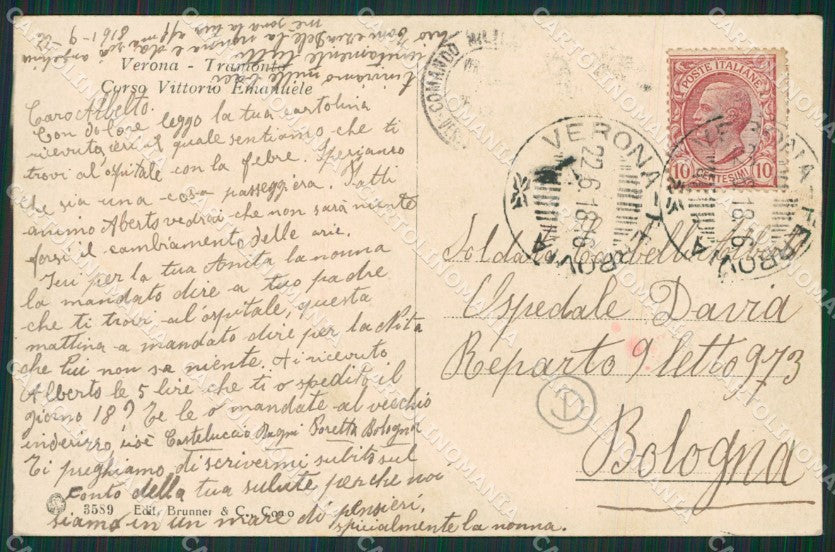 Verona - Tramonto
Corso Vittorio Emanuele
Caro Alberto.
Con dolore leggo la tua cartolina
ricevuta ieri il quale sentiamo che ti
trovi al ospitale con la febre. Speriamo
che sia una cosa passeggiera. Fatti
animo Aberto vedrai che non sarà niente
forsi il cambiamento delle arie.
Jeu per la tua Anita la nonna
la mandato dire a tuo padre
che ti trovi al ospitale, questa
mattina a mandato dire per la Nita
che lui non sa niente. Ai ricevuto
Alberto le 5 lire che ti o spedito il
giorno 18? Te le o mandate al vecchio
inderizzo, cioè Casteluccio Bagni Poretta Bologna
Ti preghiamo di scrivermi subito sul
conto della tua salute perche noi
siamo in un mare di pensieri,
spicialmente la nonna.
3589 Edit. Brunner & C., Como
inviamo mille baci
unitamente
della nonna e da
me sono la tua
16-9
COMANDO
VERONA-FERROVIA
22.6.18
POSTE ITALIANE
10 CENTESIMI 10
VERONA-FERROVIA
18
Soldato
Ospedale Davia
Reparto 9 letto 973
Bologna
1
CARTOLINOMANIA